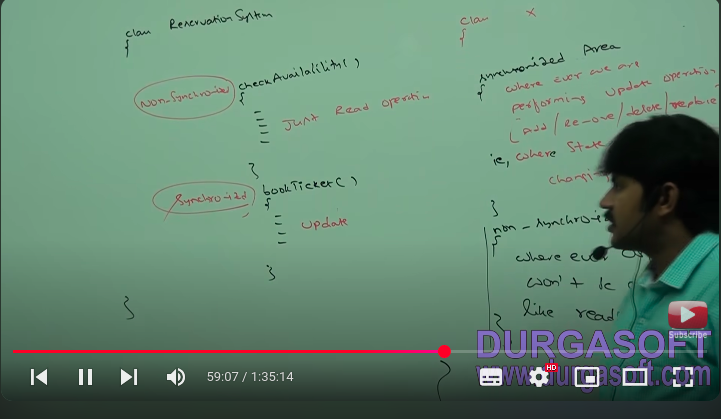 class ReservationSystem
{
Non-Synchronized
checkAvailability()
{
Just Read operation
}
Synchronized
bookTicket()
{
update
}
}
class X
{
synchronized Area
{
where ever we are
performing update operation
(Add/Remove/delete/replace
ie, where state
changing
}
non-synchronized
{
where ever
won't be
like read
}
}
Subscribe
DURGASOFT
www.durgasoft.com
59:07 / 1:35:14
HD